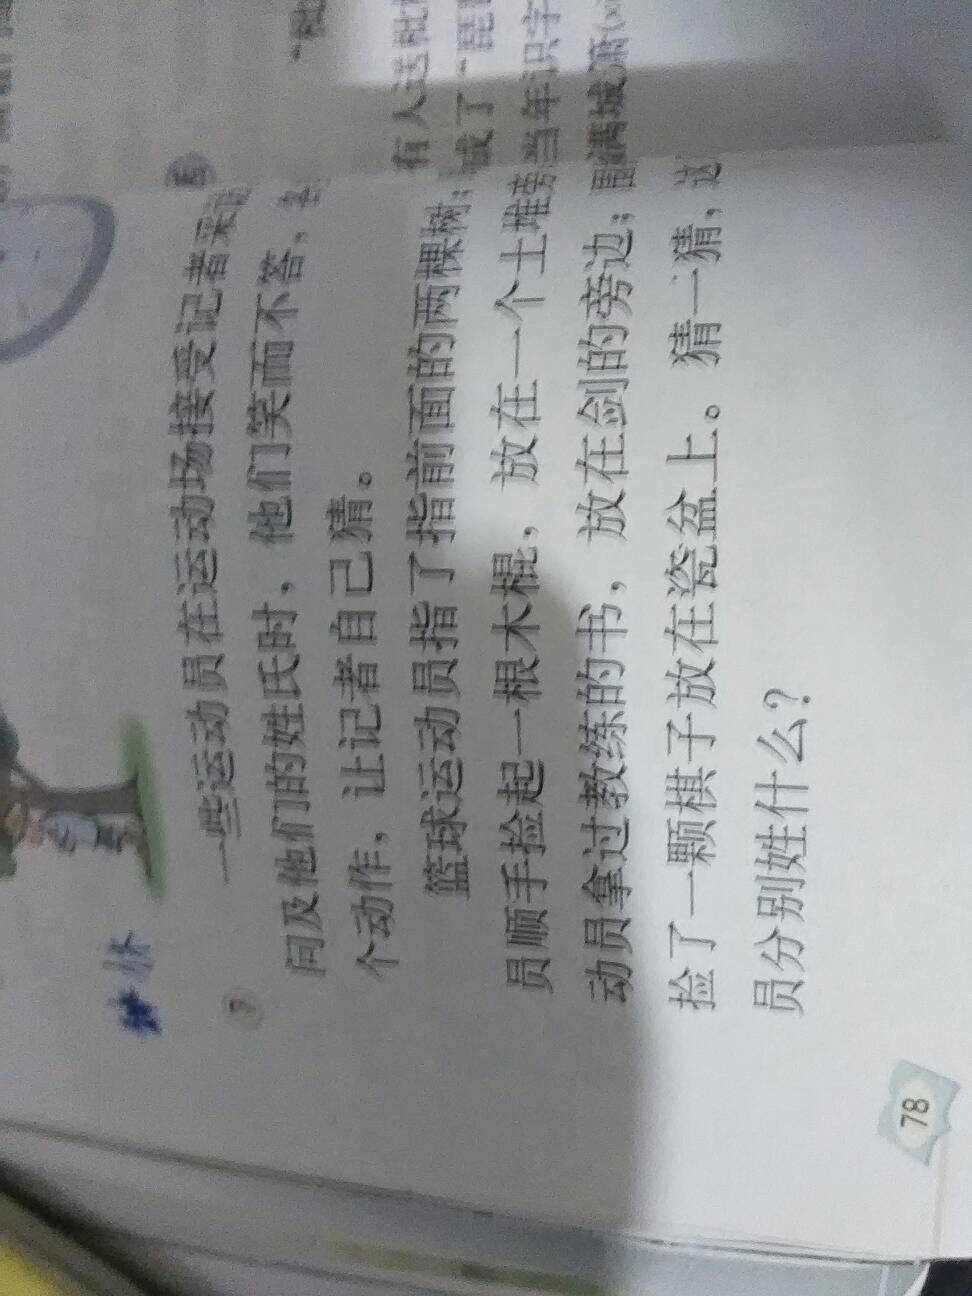 一些运动员在运动场接受记者采
问及他们的姓氏时，他们笑而不答，
个动作，让记者自己猜。
篮球运动员指了指前面的两棵树；
员顺手捡起一根木棍，放在一个土堆旁
动员拿过教练的书，放在剑的旁边；
捡了一颗棋子放在瓷盆上。猜一猜，这
员分别姓什么？
78
有人送枇
成了“琵
当年识字
满城箫(x